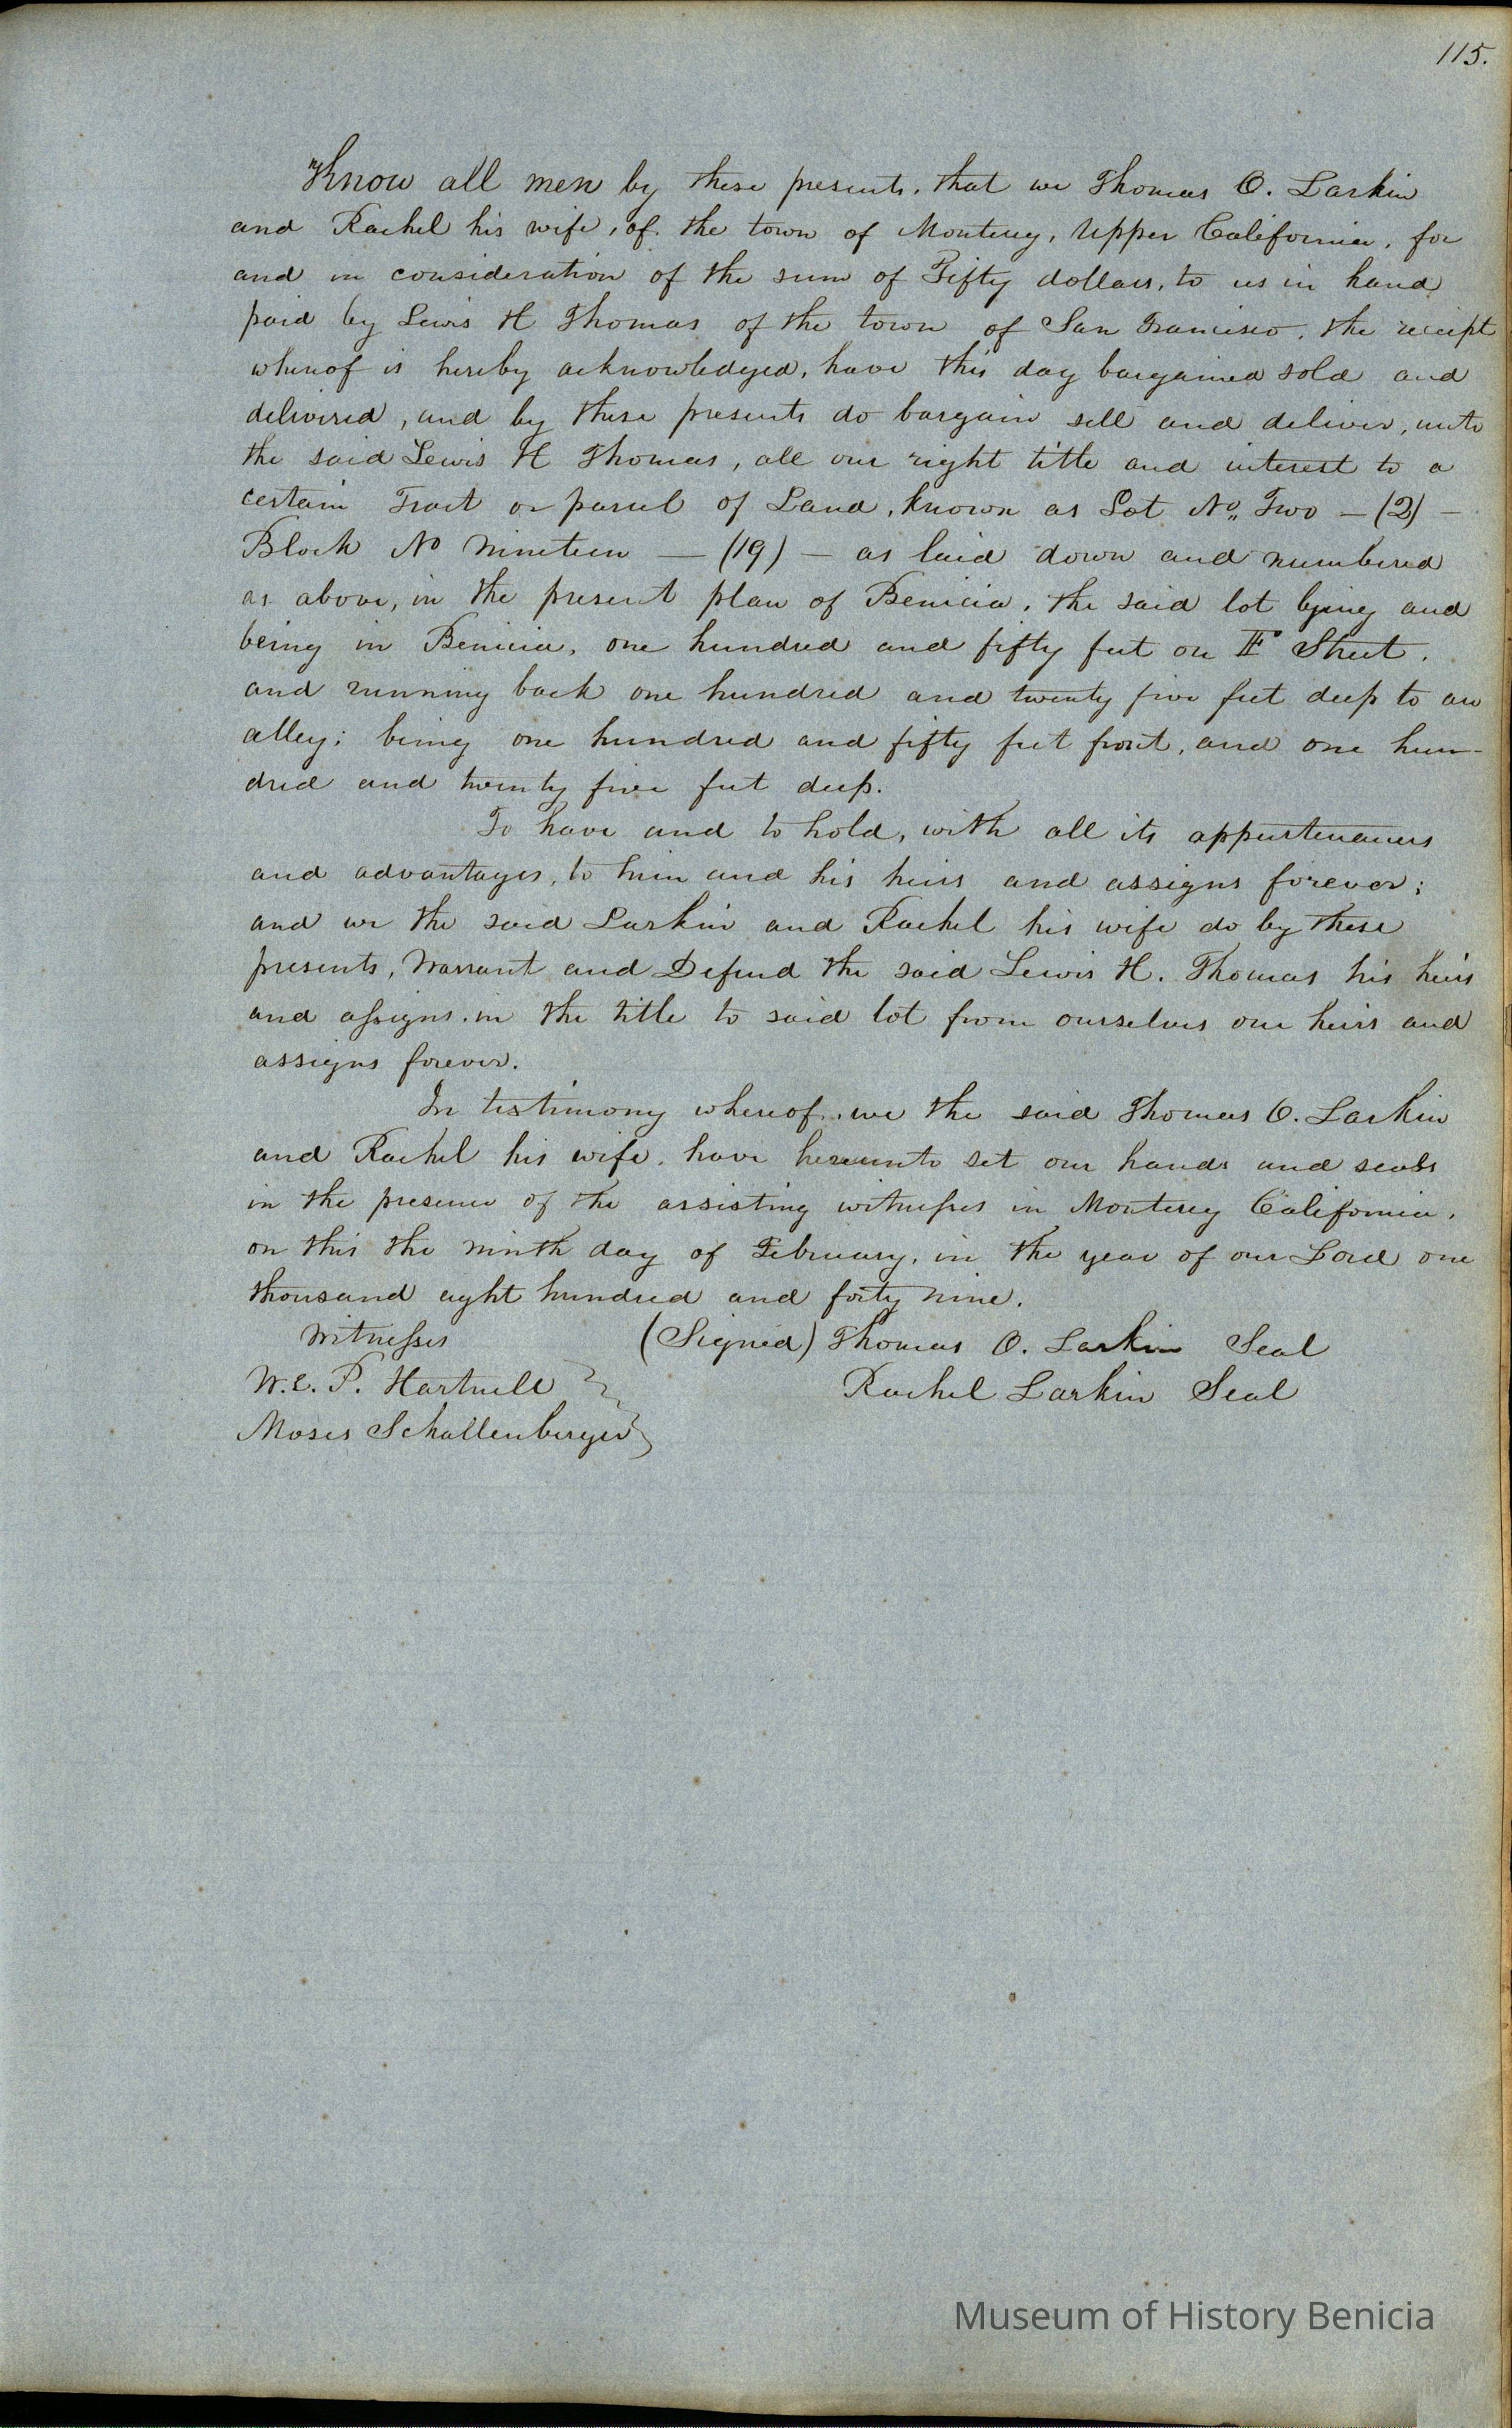 115.
Know all men by these presents, that we Thomas O. Larkin
and Rachel his wife, of the town of Monterey, Upper California, for
and in consideration of the sum of Fifty dollars, to us in hand
paid by Lewis H Thomas of the town of San Francisco, the receipt
whereof is hereby acknowledged, have this day bargained sold and
delivered, and by these presents do bargain sell and deliver, unto
the said Lewis H Thomas, all our right title and interest to a
certain Tract or parcel of Land, known as Lot No. Two — (2) —
Block No Nineteen — (19) — as laid down and numbered
as above, in the present plan of Benicia, the said lot lying and
being in Benicia, one hundred and fifty feet on F Street,
and running back one hundred and twenty five feet deep to an
alley; being one hundred and fifty feet front, and one hun-
dred and twenty five feet deep.
To have and to hold, with all its appurtenances
and advantages, to him and his heirs and assigns forever;
and we the said Larkin and Rachel his wife do by these
presents, Warrant and Defend the said Lewis H. Thomas his heirs
and assigns. in the title to said lot from ourselves our heirs and
assigns forever.
In testimony whereof, we the said Thomas O. Larkin
and Rachel his wife, have hereunto set our hands and seals
in the presence of the assisting witnesses in Monterey California,
on this the ninth day of February, in the year of our Lord one
thousand eight hundred and forty nine.
Witnesses (Signed) Thomas O. Larkin Seal
W. E. P. Hartnell Rachel Larkin Seal
Moses Schallenberger
Museum of History Benicia